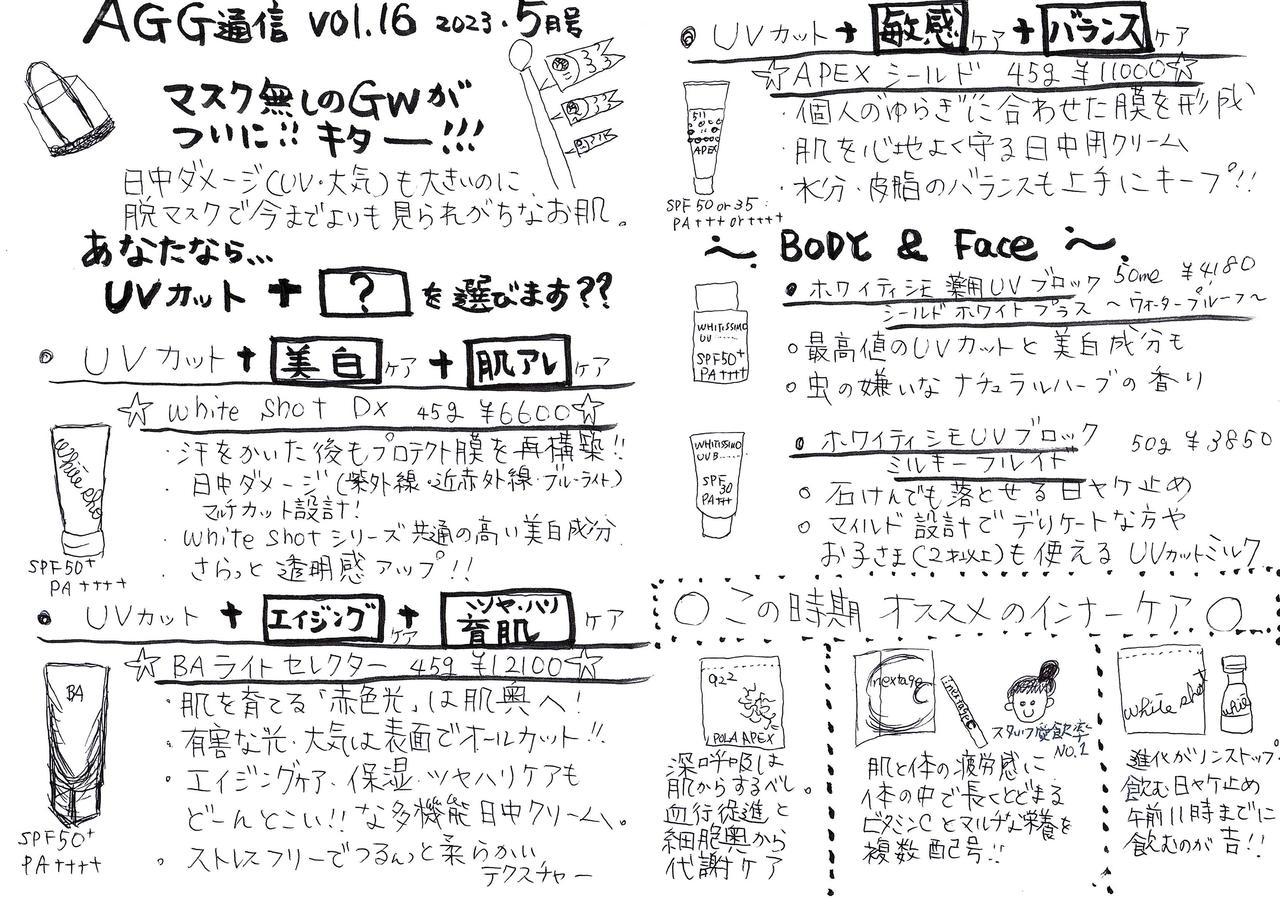 AGG通信 vol.16 2023.5月号
マスク無しのGWが
ついに!! キター!!!
日中ダメージ(UV・大気)も大きいのに、
脱マスクで今までよりも見られがちなお肌。
あなたなら…
UVカット + ? を選びます??
UVカット + 美白ケア + 肌アレケア
☆ White Shot DX 45g ¥6600☆
・汗をかいた後もプロテクト膜を再構築!!
・日中ダメージ(紫外線・近赤外線・ブルーライト)
マルチカット設計!
・White Shotシリーズ共通の高い美白成分
・さらっと透明感アップ!!
White Sho
SPF50+
PA++++
UVカット + エイジングケア + ツヤ・ハリ育肌ケア
☆ BAライトセレクター 45g ¥12100☆
・肌を育てる「赤色光」は肌奥へ!
・有害な光・大気は表面でオールカット!!
・エイジングケア・保湿・ツヤハリケアも
どーんとこい!!な多機能日中クリーム。
・ストレスフリーでつるんっと柔らかい
テクスチャー
BA
SPF50+
PA++++
UVカット + 敏感ケア + バランスケア
☆APEX シールド 45g ¥11000☆
・個人のゆらぎに合わせた膜を形成
・肌を心地よく守る日中用クリーム
・水分・皮脂のバランスも上手にキープ!!
APEX
SPF50 or 35
PA+++ or ++++
〜 BODY & Face 〜
ホワイティシモ 薬用UVブロック 50ml ¥4180
シールド ホワイト プラス 〜ウォータープルーフ〜
○最高値のUVカットと美白成分も
○虫の嫌いなナチュラルハーブの香り
WHITISSIMO
UV
SPF50+
PA++++
ホワイティシモUVブロック 50g ¥3850
ミルキーフルイド
○石けんでも落とせる日ヤケ止め
○マイルド設計でデリケートな方や
お子さま(2才以上)も使えるUVカットミルク
WHITISSIMO
UVB
SPF
30
PA+++
○この時期オススメのインナーケア○
922
POLA APEX
深呼吸は
肌からするべし。
血行促進と
細胞奥から
代謝ケア
nextage C
nextage C
スタッフ愛飲率
NO.1
肌と体の疲労感に
体の中で長くとどまる
ビタミンCとマルチな栄養を
複数配合!!
White shot
White
進化がノンストップ
飲む日ヤケ止め
午前11時までに
飲むのが吉!!